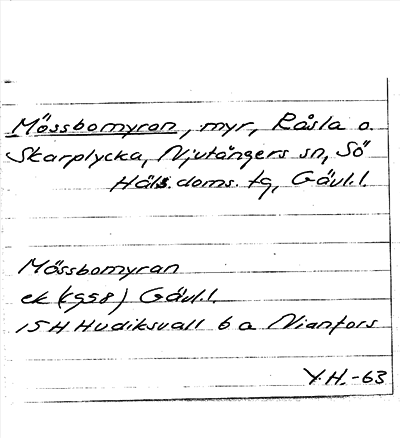 Mössbomyran, myr, Råsla o.
Skarplycka, Njutångers sn, Sö
Häls. doms. tg, Gävl.l.
Mössbomyran
ek (1958) Gävl.l.
15H Hudiksvall 6a Nianfors
Y.H.-63